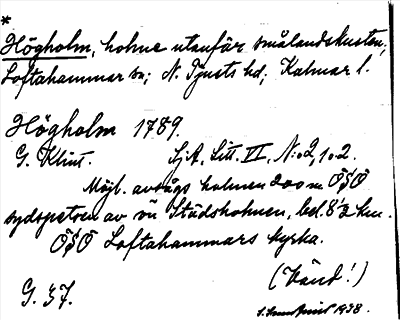 *
Högholm, holme utanför smålandskusten,
Loftahammar sn; N. Tjusts hd; Kalmar l.
Högholm 1789.
G. Klint. Sj.A, Litt. II, N:o 2, 1 o. 2.
Möjl. avsågs holmen 200 m ÖSÖ
sydspetsen av ön Städsholmen, bel. 8 ½ km.
ÖSÖ Loftahammars kyrka.
(Vänd!)
G. 37. 1938.